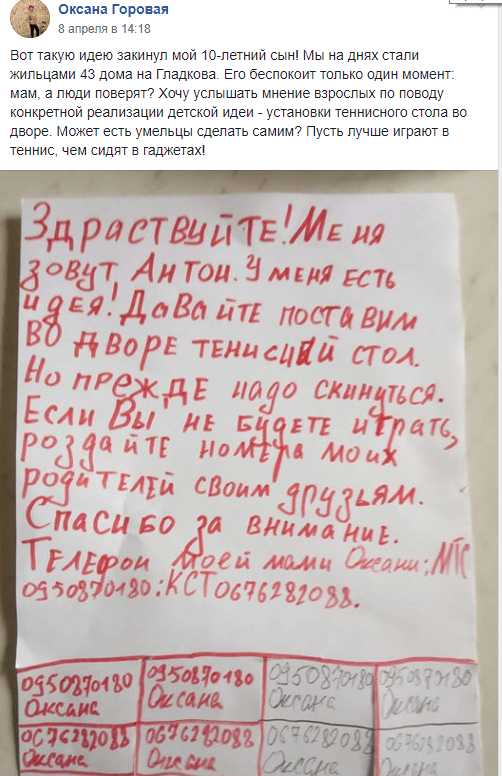 Оксана Горовая
8 апреля в 14:18
Вот такую идею закинул мой 10-летний сын! Мы на днях стали
жильцами 43 дома на Гладкова. Его беспокоит только один момент:
мам, а люди поверят? Хочу услышать мнение взрослых по поводу
конкретной реализации детской идеи - установки теннисного стола во
дворе. Может есть умельцы сделать самим? Пусть лучше играют в
теннис, чем сидят в гаджетах!
Здраствуйте! Меня
зовут Антон. У меня есть
идея! Давайте поставим
во дворе тенисный стол.
Но прежде надо скинуться.
Если Вы не будете играть,
роздайте номера моих
родителей своим друзьям.
Спасибо за внимание.
Телефон моей мами Оксани: МТС
0950870180: КСТ0676282088.
0950870180 0950870180 0950870180 0950870180
Оксана Оксана Оксана Оксана
0676282088 0676282088 0676282088 0676282088
Оксана Оксана Оксана Оксана